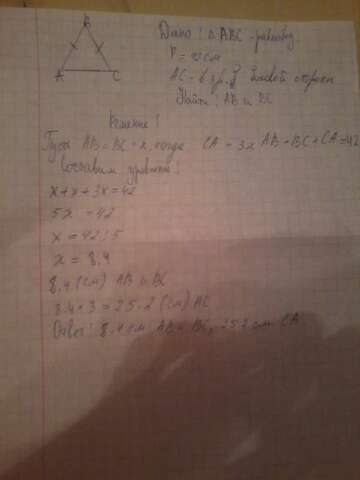 B
A C
Дано: △ABC - равнобед
P = 42 см
AC - в 3 р. > боковой стороны
Найти: AB и BC
Решение:
Пусть AB = BC = x, тогда CA - 3x AB + BC + CA = 42
Составим уравнение:
x + x + 3x = 42
5x = 42
x = 42:5
x = 8,4
8,4 (см) AB и BC
8.4 * 3 = 25.2 (см) AC
Ответ: 8.4 см AB и BC, 25.2 см CA